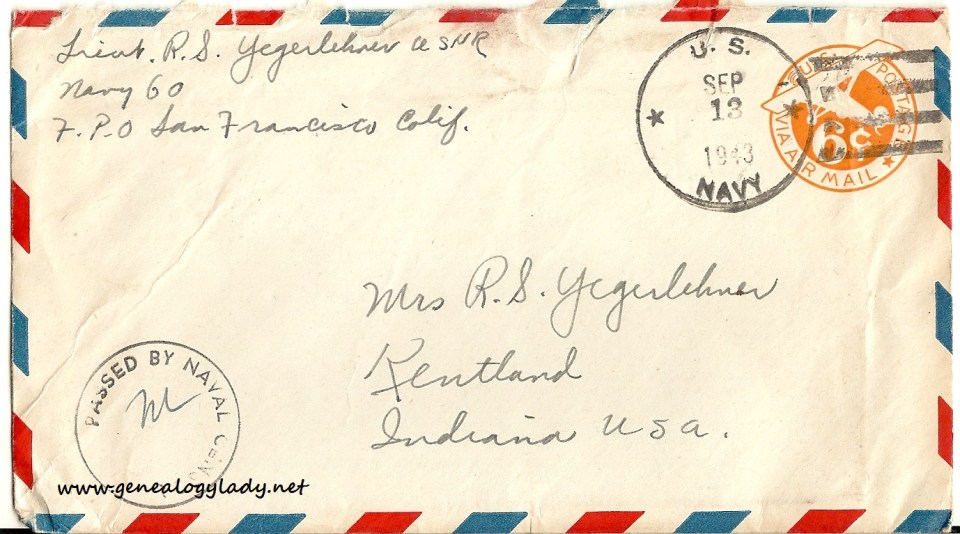 Lieut. R. S. Yegerlehner USNR
Navy 60
F. P. O San Francisco Calif.
U. S.
SEP
13
1943
NAVY
POSTAGE
6¢
VIA AIR MAIL
Mrs R. S. Yegerlehner
Kentland
Indiana USA.
PASSED BY NAVAL CENS
www.genealogylady.net